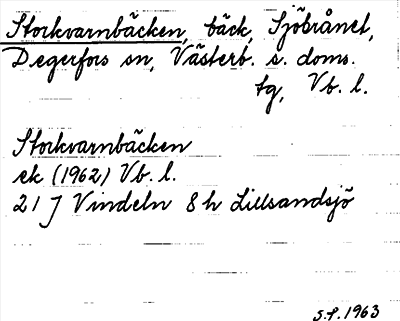 Storkvarnbäcken, bäck, Sjöbrånet,
Degerfors sn, Västerb. s. doms.
tg, Vb. l.
Storkvarnbäcken
ek (1962) Vb. l.
21 J Vindeln 8 h Lillsandsjö
S.F. 1963